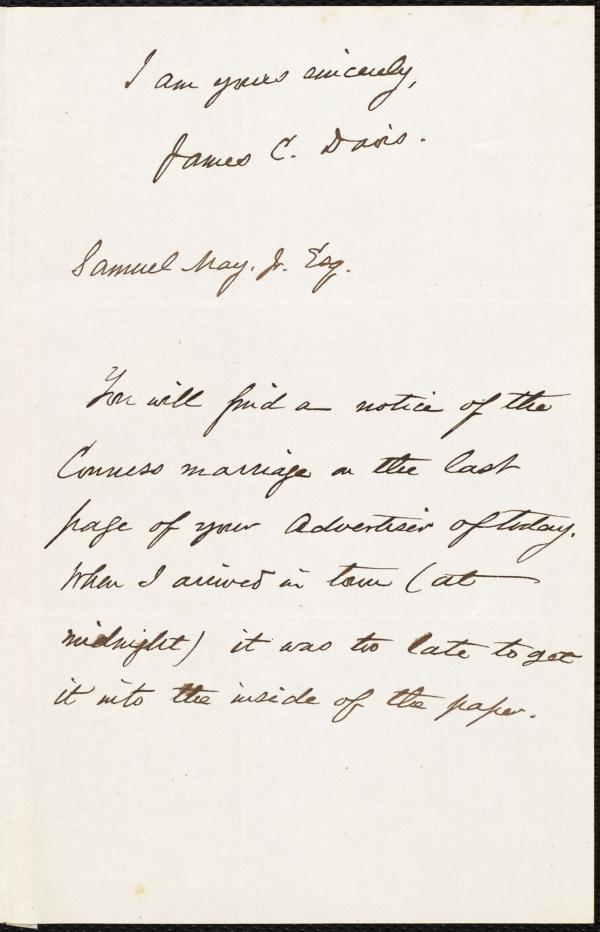 I am yours sincerely,
James C. Davis.
Samuel May, Jr. Esq.
You will find a notice of the
Conness marriage on the last
page of your Advertiser of today.
When I arrived in town (at
midnight) it was too late to get
it into the inside of the paper.